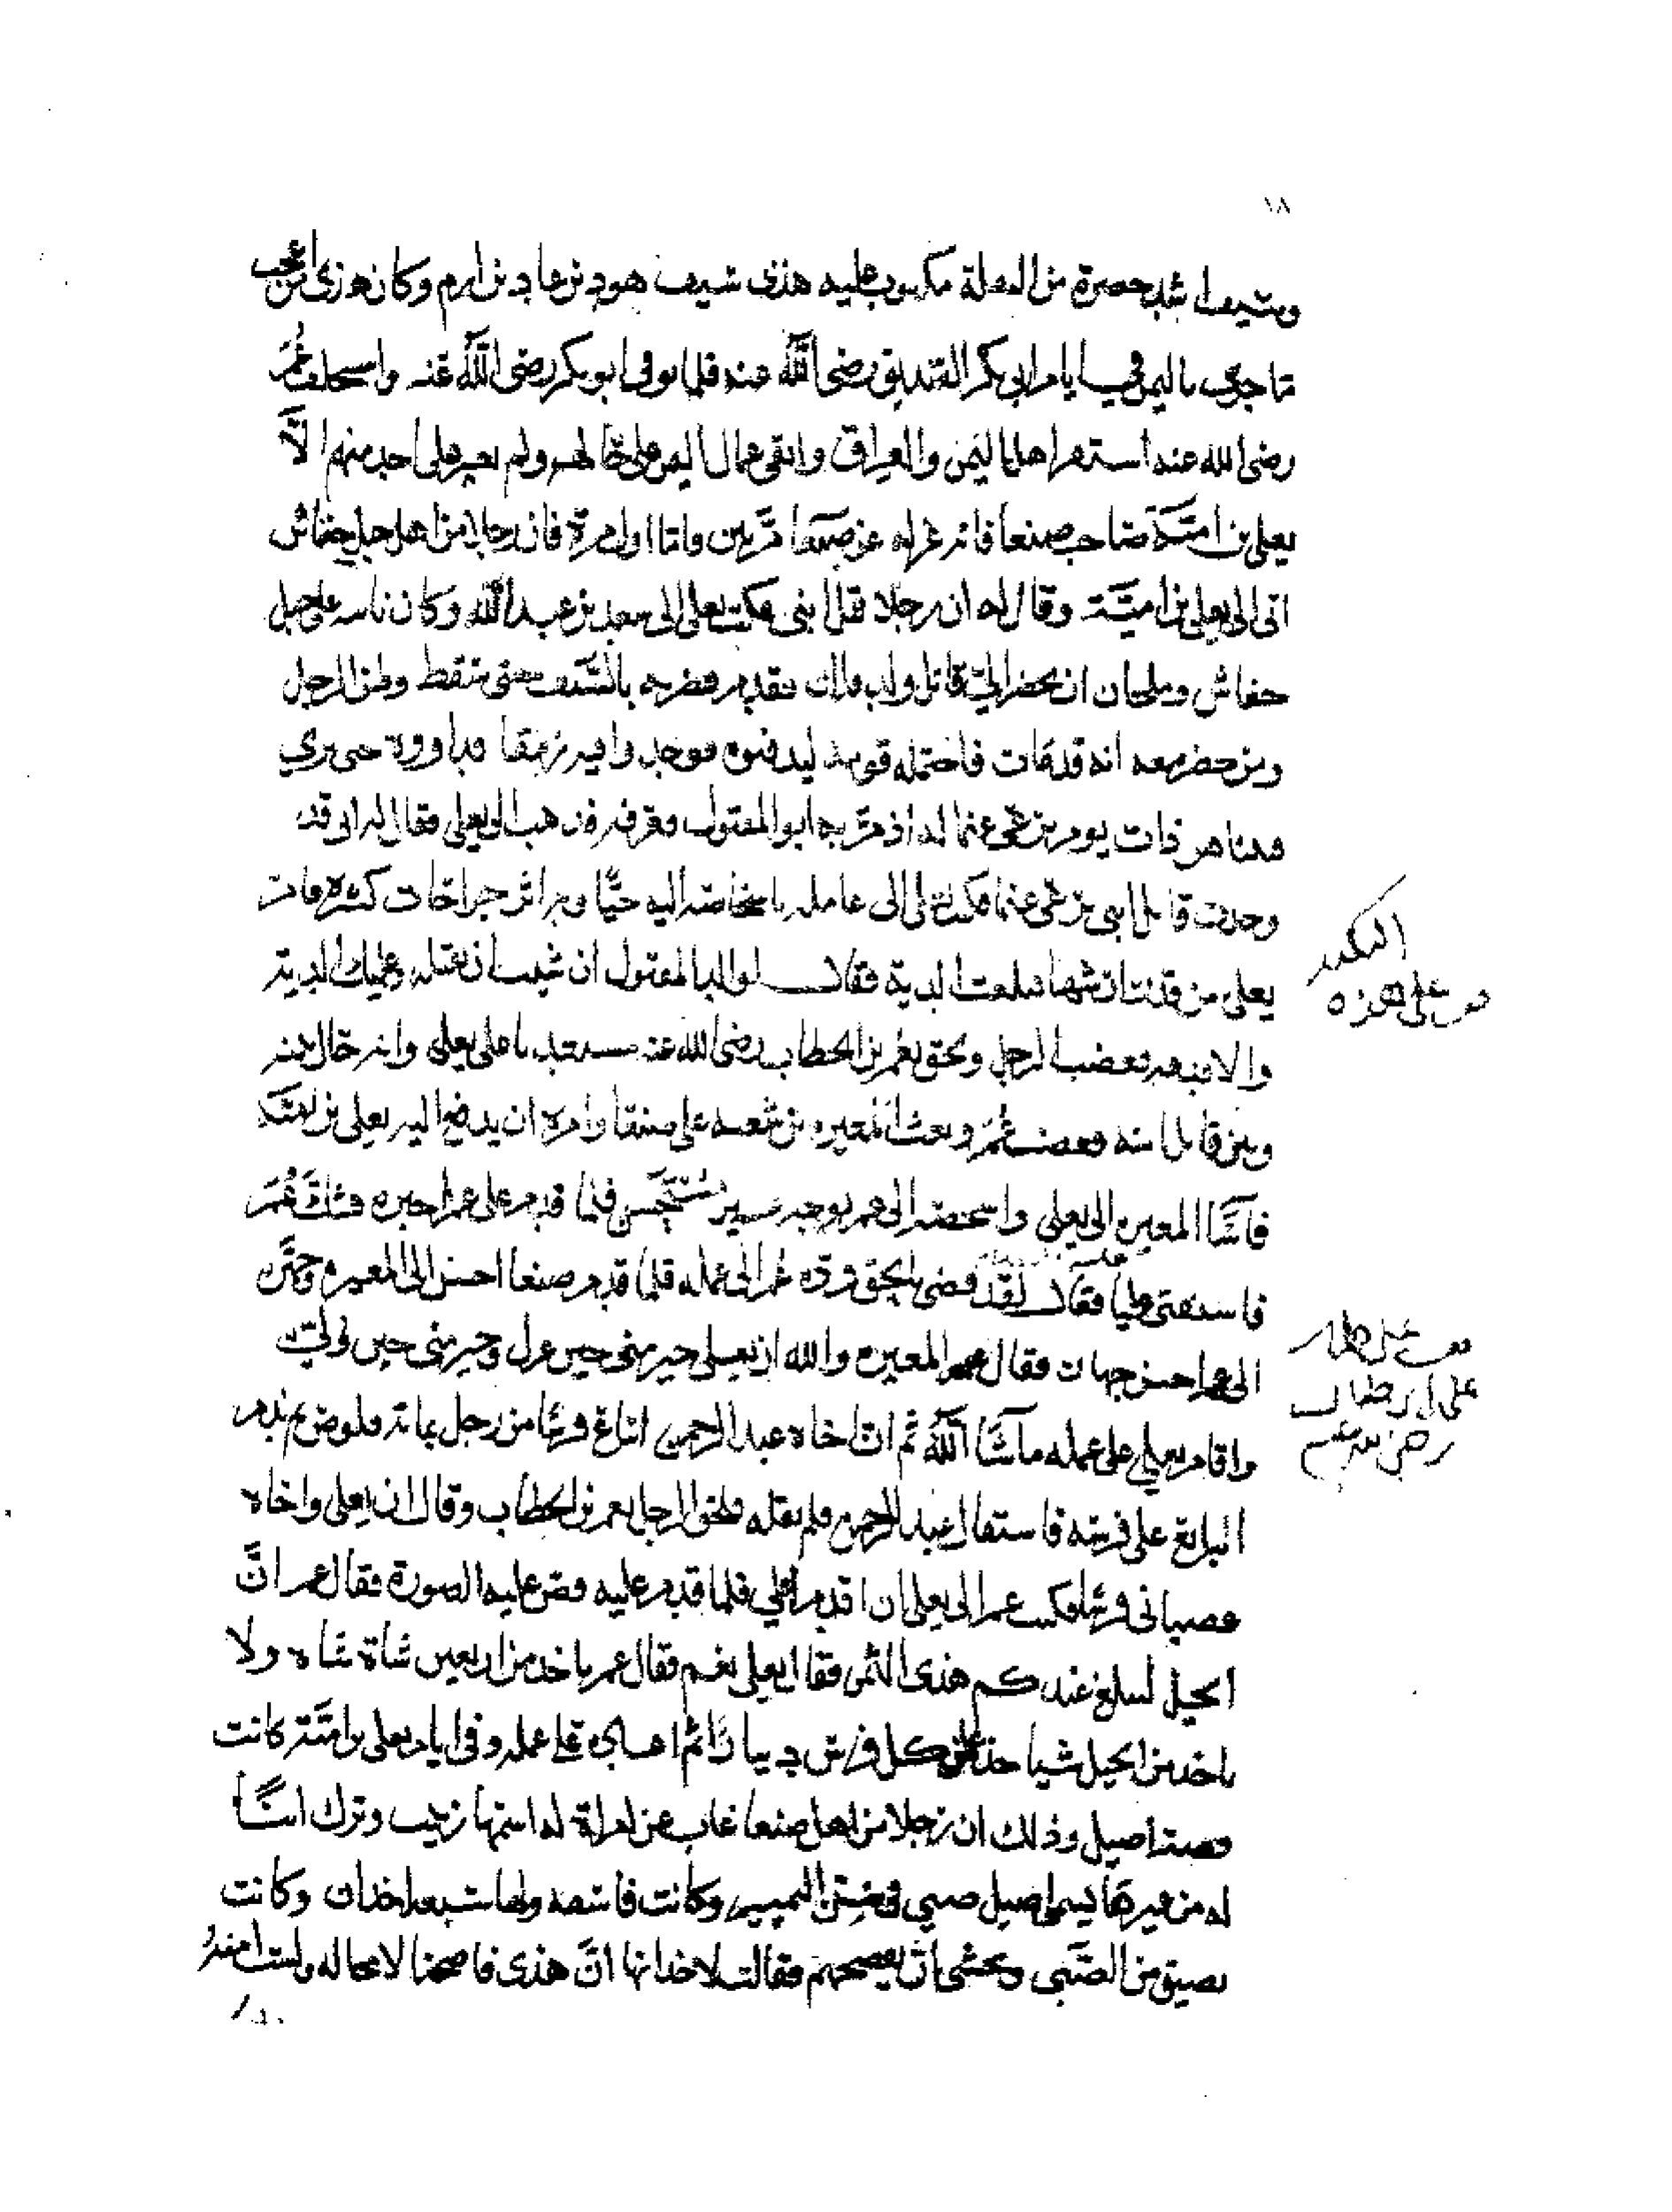 ١٨
وسيفا اشد حصرة من البقلة مكتوب عليه هذى سيف هود بن عاد بن ارم وكان هذى من اعجب
ما جرى باليمن في ايام ابى بكر الصديق رضى الله عنه فلما توفى ابو بكر رضى الله عنه واستخلف عمر
رضى الله عنه استنفر اهل اليمن والعراق وابقى عمال اليمن على حالهم ولم يغير على احد منهم الا
يعلى بن امية صاحب صنعا فانه عزله عن صنعا مرتين واما اول مرة فان رجلا من اهل جبل حفاش
اتى الى يعلى بن امية وقال له ان رجلا قتل ابنى فكتب يعلى الى سعيد بن عبد الله وكان نايبه على جبل
حفاش وملحان ان يحضر اليه قاتل ولد فلان فقدم فضربه بالسيف حتى سقط وظن الرجل
ومن حضر معه انه قد مات فاحتمله قومه ليدفنوه فوجدوا فيه رمقا فداووه حتى بري
فبينا هو ذات يوم يرعى غنما له اذ مر به ابو المقتول فعرفه فذهب الى يعلى فقال له انى قد
وجدت قاتل ابنى يرعى غنما فكتب يعلى الى عامله باشخاصه اليه حيا وبه اثر جراحات كثيره فامر
يعلى من قدر ارشها فبلغت الدية فقال لوالد المقتول ان شيت ان تقتله وعليك الدية
والا فدعه فغضب الرجل ولحق بعمر بن الخطاب رضى الله عنه مستعديا على يعلى وانه حال بينه
وبين قاتل ابنه فغضب عمر وبعث المغيره بن شعبه على صنعا وامره ان يدفع اليه يعلى بن امية
فاسا المغيره الى يعلى واشخصه الى عمر بوجه سير فلما قدم على عمر اخبره فسال عمر
فاستفتى عليا فقال لقد قضى بالحق فرده عمر الى عمله فلما قدم صنعا احسن الى المغيره وجهزه
الى عمر احسن جهاز فقال المغيره والله ان يعلى خير منى حين عزل وخير منى حين ولى
واقام يعلى على عمله ما شا الله ثم ان اخاه عبد الرحمن ابتاع فرسا من رجل بماية قلوص ثم ندم
البايع على فرسه فاستقال عبد الرحمن فلم يقله فلحق الرجل بعمر بن الخطاب وقال ان يعلى واخاه
غصبانى فرسا فكتب عمر الى يعلى ان اقدم على فلما قدم عليه قص عليه الصورة فقال عمر ان
الخيل لتبلغ عندكم هذى الثمن فقال يعلى نعم فقال عمر ناخذ من اربعين شاة شاه ولا
ناخذ من الخيل شيا خذ من كل فرس دينارا ثم اعاده على عمله وفى ايام يعلى بن امية كانت
قصة اصيل وذلك ان رجلا من اهل صنعا غاب عن امراة له اسمها زينب وترك ابنا
له من غيرها يسمى اصيل صبي فى سن التمييز وكانت فاسقه ولها سبعة اخدان وكانت
تضيق من الصبى وتخشى ان يفضحهم فقالت لاخدانها ان هذى فاضحنا لا محاله ولست امنه
النكير
من على هذه
من على كلام
على بن ابي طالب
رضي الله عنه